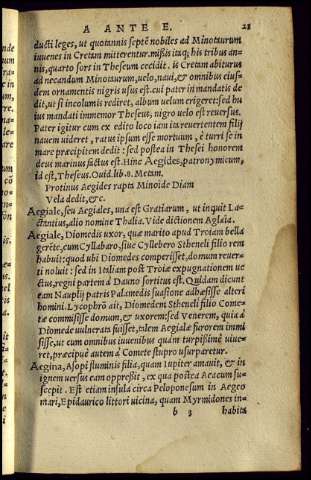 A ANTE E. 21
ducti leges, ut quotannis septē nobiles ad Minotaurum
iuuenes in Cretam mitterentur. missis itaq; his tribus an-
nis, quarto sors in Theseum cecidit. is Cretam abiturus
ad necandum Minotaurum, uelo, naui, & omnibus eius-
dem ornamentis nigris usus est. cui pater in mandatis de
dit, ut si incolumis rediret, album uelum erigeret: sed hu
ius mandati immemor Theseus, nigro uelo est reuersus.
Pater igitur cum ex edito loco iam iā reuertentem filij
nauem uideret, ratus ipsum esse mortuum, è turri se in
mare præcipitem dedit: sed postea in Thesei honorem
deus marinus factus est. Hinc Aegides, patronymicum,
id est, Theseus. Ouid. lib. 8. Metam.
Protinus Aegides rapta Minoide Diam
Vela dedit, &c.
Aegiale, seu Aegiales, una est Gratiarum, ut inquit La-
ctantius, alio nomine Thalia. Vide dictionem Aglaia.
Aegiale, Diomedis uxor, quæ marito apud Troiam bella
gerēte, cum Cyllabaro, siue Cyllebero Stheneli filio rem
habuit: quod ubi Diomedes comperisset, domum reuer-
ti noluit: sed in Italiam post Troiæ expugnationem ue
ctus, regni partem à Dauno sortitus est. Quidam dicunt
eam Nauplij patris Palamedis suasione adhæsisse alteri
homini. Lycophrō ait, Diomedem Stheneli filio Come-
tæ commisisse domum, & uxorem: sed Venerem, quia à
Diomede uulnerata fuisset, talem Aegialæ furorem immi
sisse, ut cum omnibus iuuenibus quàm turpissimè uiue-
ret, præcipuè autem à Comete stupro usurparetur.
Aegina, Asopi fluminis filia, quam Iupiter amauit, & in
ignem uersus eam oppressit, ex qua postea Aeacum su-
scepit. Est etiam insula circa Peloponesum in Aegeo
mari, Epidaurico littori uicina, quam Myrmidones in-
b 3 habita